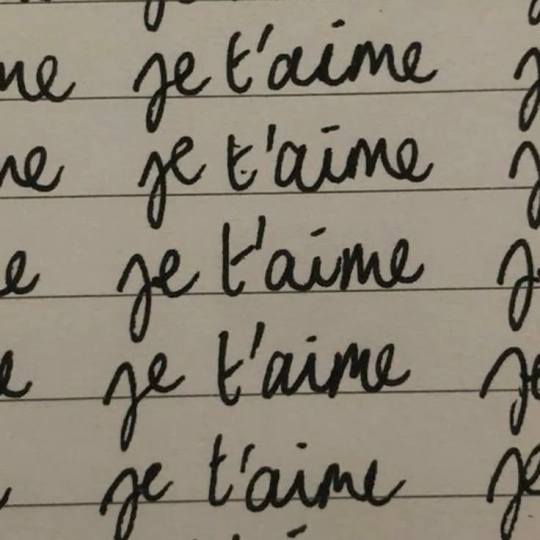 me je t'aime j
ne je t'aime j
e je t'aime je
e je t'aime je
je t'aime je